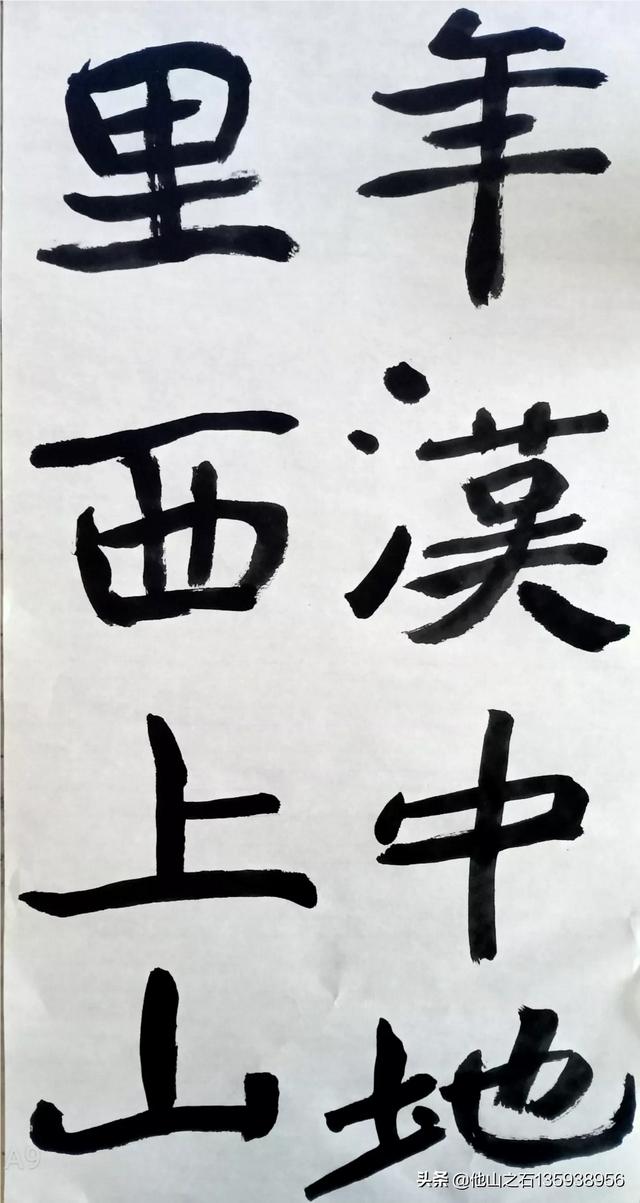 年漢中地
里西上山
头条 @他山之石135938956
A9